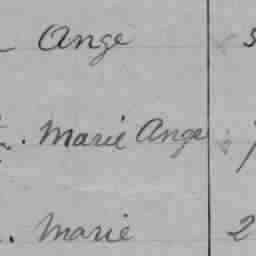 Ange
Marie Ange
Marie 2